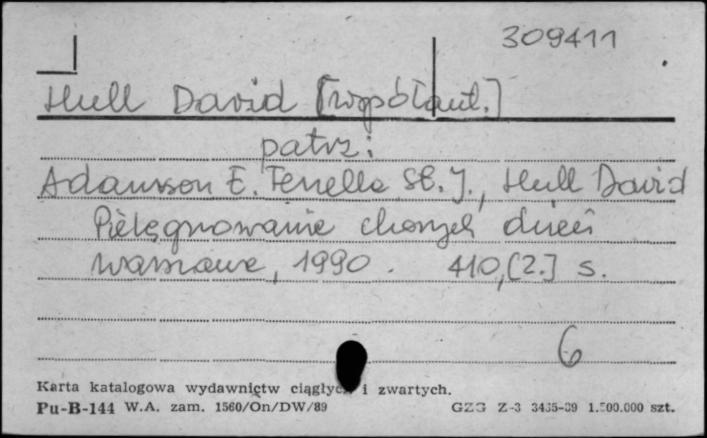 309411
Hull David [współaut.]
patrz:
Adamson E. Fenella St. J., Hull David
Pielęgnowanie chorych dzieci
Warszawa, 1990. 410,[2.] s.
6
Karta katalogowa wydawnictw ciągłych i zwartych.
Pu-B-144 W.A. zam. 1560/On/DW/89 GZG Z-3 3435-89 1.500.000 szt.